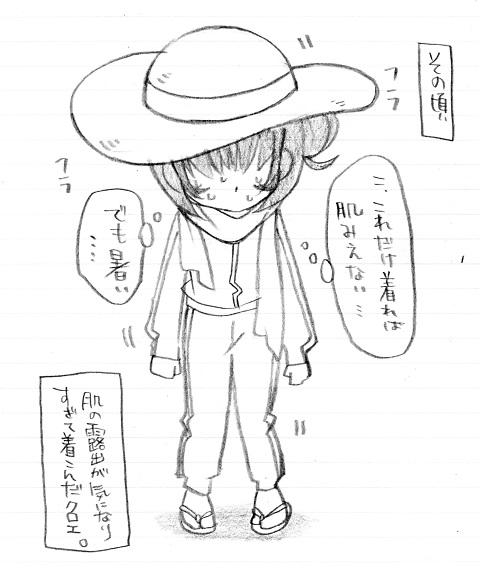 その頃、
フラ
フラ
…これだけ着れば
肌みえない…
でも暑い
……
肌の露出が気になり
すぎて着こんだクロエ。